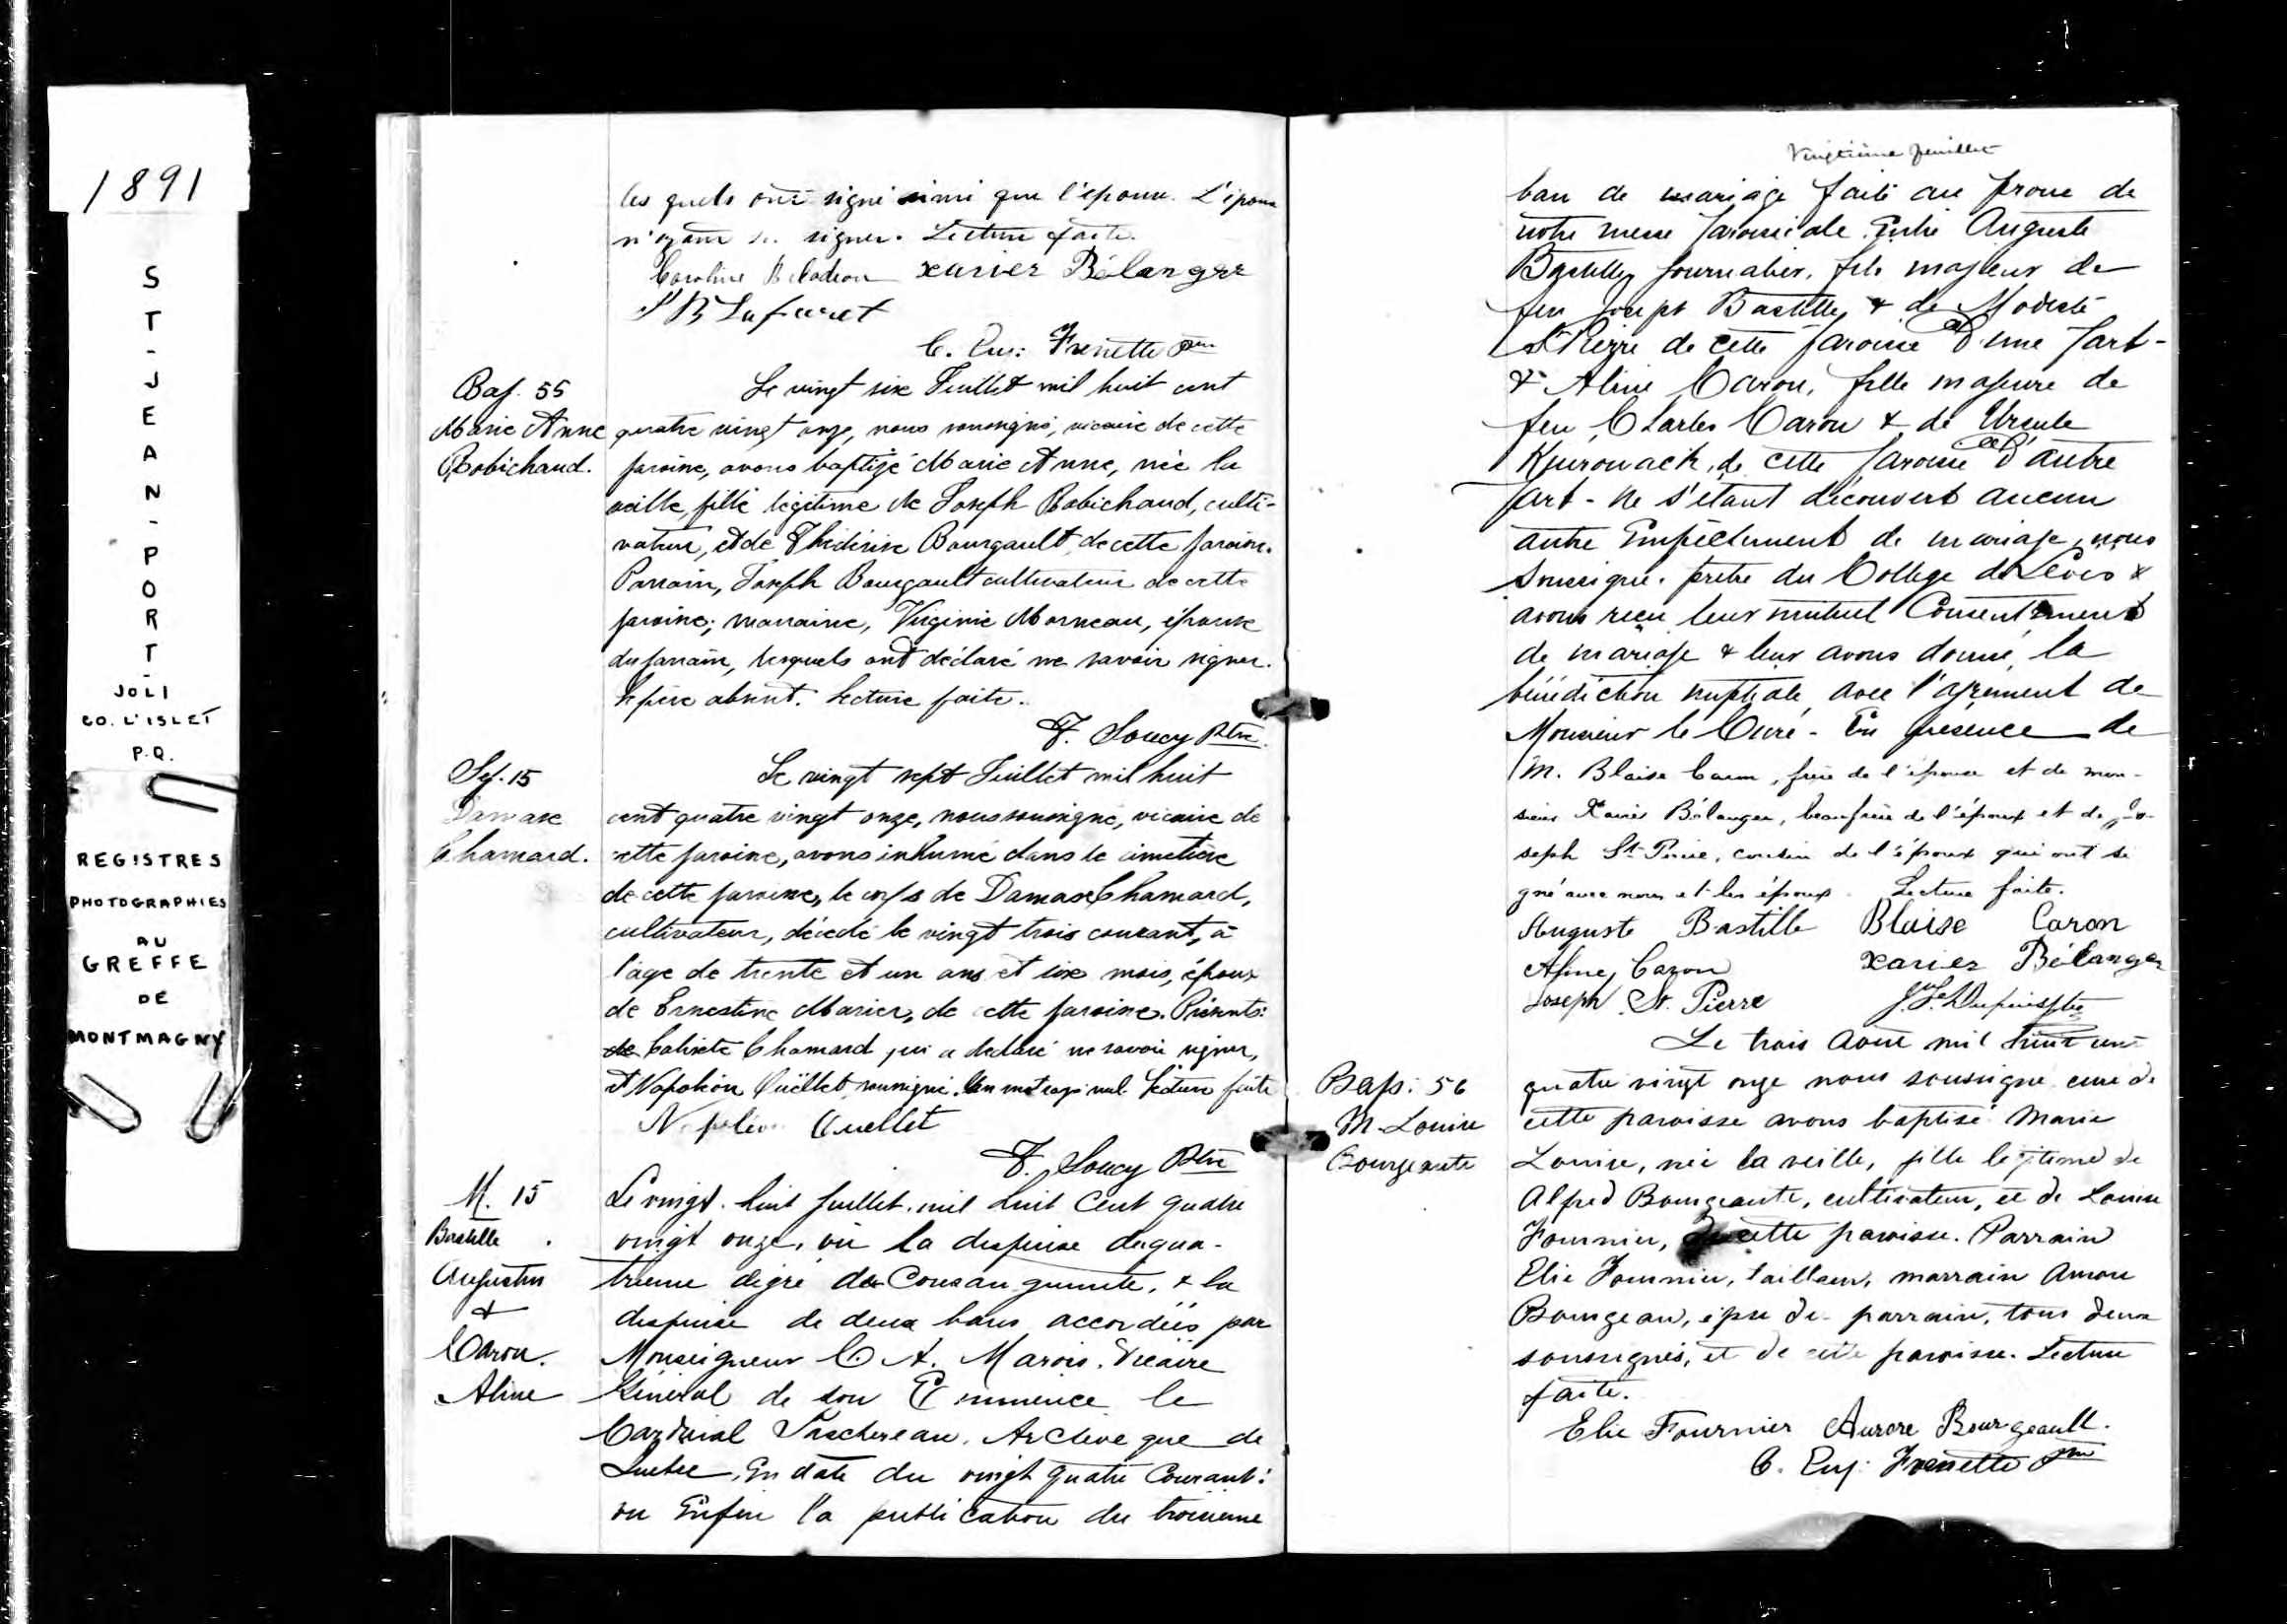 1891
ST-JEAN-PORT-
JOLI
CO. L'ISLET
P.Q.
REGISTRES
PHOTOGRAPHIES
AU
GREFFE
DE
MONTMAGNY
les quels ont signé ainsi que l'époux. L'épouse
n'ayant su signer. Lecture faite.
Caroline Xavier Bélanger
C. Frenette Ptre
Bap. 55
Marie Anne
Robichaud.
Le vingt six Juillet mil huit cent
quatre vingt onze, nous soussigné, vicaire de cette
paroisse, avons baptizé Marie Anne, née la
veille, fille légitime de Joseph Robichaud, culti-
vateur, et de Bourgault, de cette paroisse.
Parrain, Joseph Bourgault cultivateur de cette
paroisse; marraine, Virginie Morneau, épouse
du parrain, lesquels ont déclaré ne savoir signer.
le père absent. Lecture faite.
F. Soucy Ptre.
Sép. 15
Damase
Chamard.
Le vingt sept Juillet mil huit
cent quatre vingt onze, nous soussigné, vicaire de
cette paroisse, avons inhumé dans le cimetière
de cette paroisse, le corps de Damase Chamard,
cultivateur, décédé le vingt trois courant, à
l'age de trente et un ans et six mois, époux
de Ernestine Marier, de cette paroisse. Présents:
de Calixte Chamard qui a déclaré ne savoir signer,
et Napoléon Ouellet, soussigné. Un mot rayé nul. Lecture faite
Napoléon Ouellet
F. Soucy Ptre
M. 15
Bastille
Augustin
&
Caron.
Aline
Le vingt huit Juillet, mil huit cent quatre
vingt onze, vu la dispense du qua-
trieme dégré de Consanguinité, & la
dispense de deux bans accordées par
Monseigneur C. A. Marois. Vicaire
Général de son Eminence le
Cardinal Taschereau, Archeveque de
Quebec, En date du vingt quatre Courant:
vu Enfin la publication du troisieme
Vingtième feuillet
ban de mariage faite au prone de
notre messe paroissiale Entre Auguste
Bastille, journalier, fils majeur de
feu Joseph Bastille & de Modeste
St Pierre de cette paroisse d'une part-
& Aline Caron, fille majeure de
feu Charles Caron & de Ursule
Kjurouack, de cette paroisse d'autre
part - ne s'étant découvert aucun
autre Empêchement de mariage, nous
soussigné. pretre du College de Lévis &
avons reçu leur mutuel Consentement
de mariage & leur avons donné, la
bénédiction nuptiale, avec l'agrément de
Monsieur le Curé - En presence de
M. Blaise Caron, frère de l'épouse et de mon-
sieur Xavier Bélanger, beaufrère de l'époux et de Jo-
seph St Pierre, cousin de l'époux qui ont si
gné avec nous et les époux. Lecture faite.
Auguste Bastille Blaise Caron
Aline Caron Xavier Bélanger
Joseph St. Pierre Dupuis ptre
Bap: 56
M. Louise
Bourgeault
Le trois Aout mil huit cent
quatre vingt onze nous soussigné curé de
cette paroisse avons baptisé Marie
Louise, née la veille, fille legitime de
Alfred Bourgeault, cultivateur, et de Louise
Fournier, de cette paroisse. Parrain
Elie Fournier, tailleur, marraine Aurore
Bourgeau, épse de parrain, tous deux
soussignés, et de cette paroisse. Lecture
faite.
Elie Fournier Aurore Bourgeault.
C. Frenette Ptre